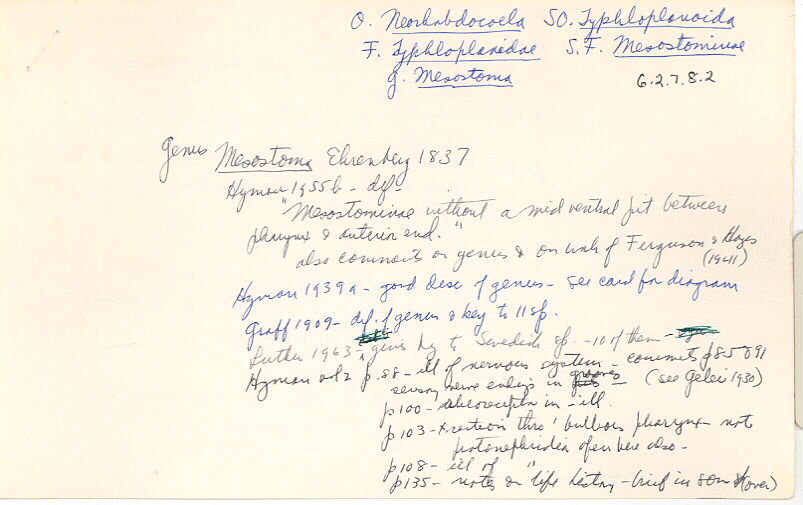 O. Neorhabdocoela SO. Typhloplanoida
F. Typhloplanidae S.F. Mesostominae
g. Mesostoma
6.2.7.8.2
Genus Mesostoma Ehrenberg 1837
Hyman 1955b - def -
"Mesostominae without a mid ventral pit between
pharynx & anterior end."
also comments on genus & on work of Ferguson & Hayes
(1941)
Hyman 1939a - good desc of genus - see card for diagram
Graff 1909 - def. of genus & key to 11 sp.
Luther 1963 - gives key to Swedish sp. - 10 of them -
Hyman vol 2 p. 88 - ill of nervous system - comments p 85 & 91
sensory nerve endings in grooves (see Gelei 1930)
p 100 - in - ill.
p 103 - x section thro' bulbous pharynx - note
protonephridia open here also -
p 108 - ill of "
p 135 - notes on life history - brief in (over)